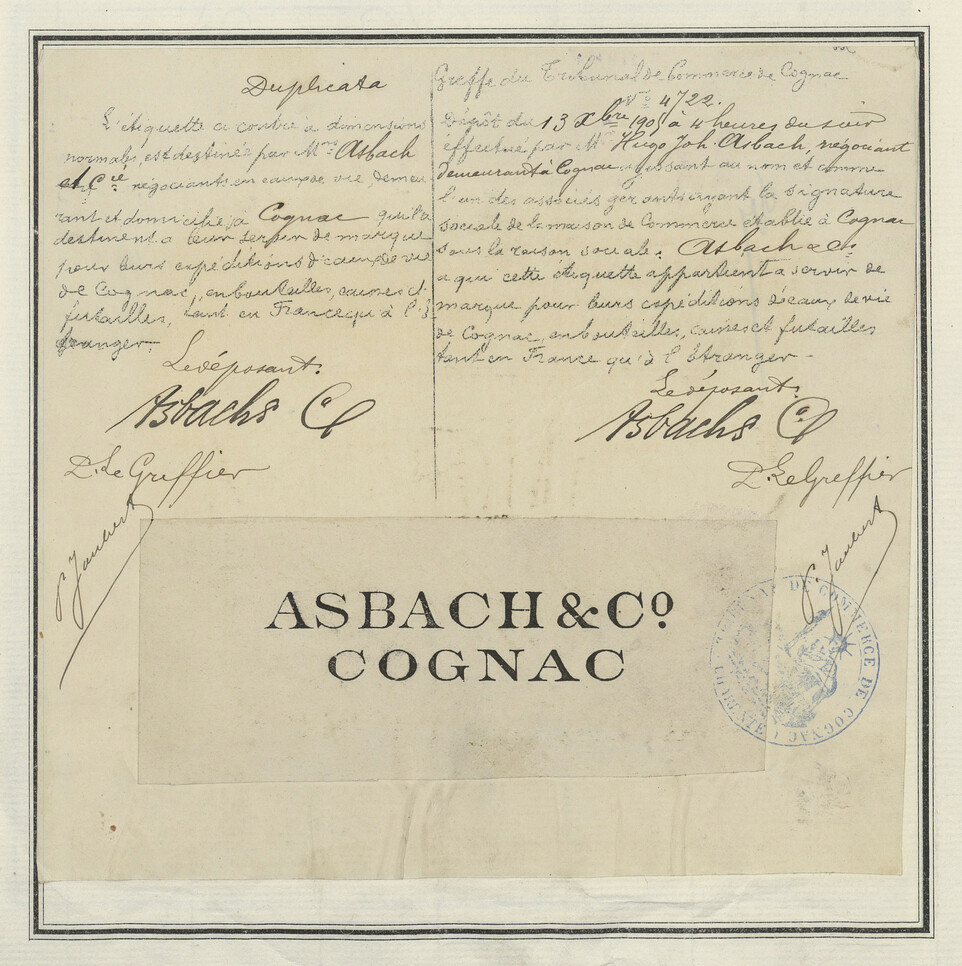 Duplicata
L'étiquette ci contre à dimensions
normales, est destinée par Mrs Asbach
et Cie négociants en eaux de vie, demeu
rant et domicilié à Cognac qui la
destinent à leur servir de marque
pour leurs expéditions d'eaux de vie
de Cognac, en bouteilles, caisses et
futailles, tant en France qu'à l'é
tranger.
Le déposant.
Asbach & Co
P. Le Greffier
P Jaubert
Greffe du Tribunal de Commerce de Cognac
No 4722.
Dépôt du 13 Xbre 1905 à 4 heures du soir
effectué par Mr Hugo Joh. Asbach, négociant
demeurant à Cognac agissant au nom et comme
l'un des associés gérants ayant la signature
sociale de la maison de Commerce établie à Cognac
sous la raison sociale: Asbach & Co.
à qui cette étiquette appartient à servir de
marque pour leurs expéditions d'eaux de vie
de Cognac, en bouteilles, caisses et futailles
tant en France qu'à l'étranger.
Le déposant.
Asbach & Co
P. Le Greffier
P Jaubert
ASBACH & Co
COGNAC
TRIBUNAL DE COMMERCE DE COGNAC